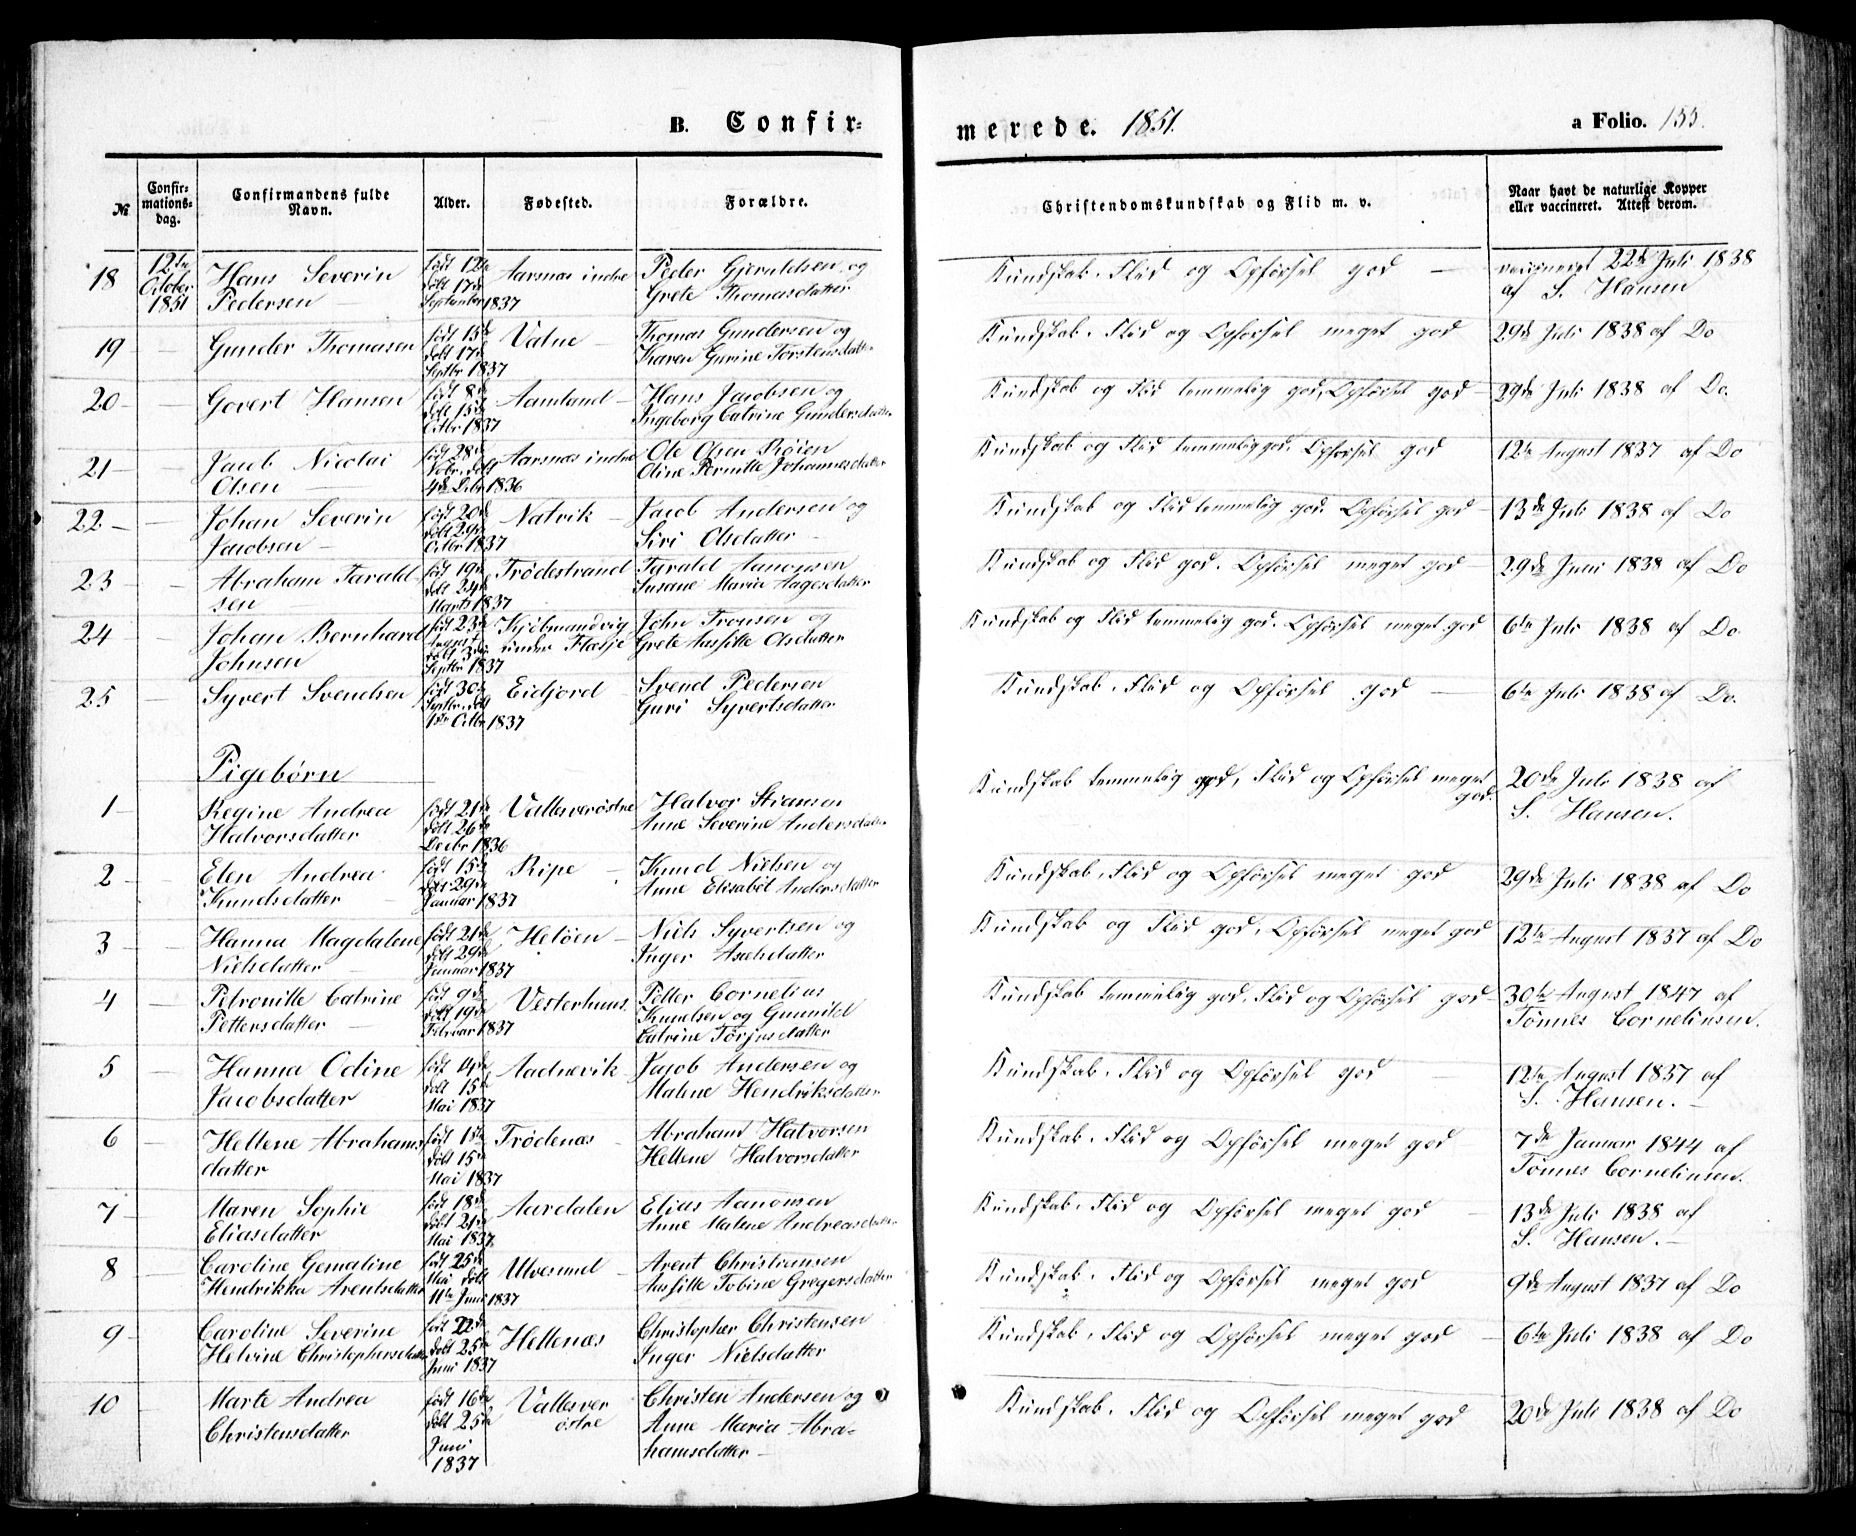 B. Confir-
merede. 1851.
a Folio. 155.
№
Confir-
mations-
dag.
Confirmandens fulde
Navn.
Alder.
Fødested.
Forældre.
Christendomskundskab og Flid m. v.
Naar havt de naturlige Kopper
eller vaccineret. Attest derom.
18 12te October 1851 Hans Severin Pedersen født 12te døbt 17de September 1837 Aarsnæs indre Peder Gjeruldsen og Grete Thomasdatter Kundskab, Flid og Opførsel god vaccineret 22de Juli 1838 af S. Hansen
19 Gunder Thomasen født 15de døbt 17de Septbr 1837 Valne Thomas Gundersen og Karen Gurine Torstensdatter Kundskab, Flid og Opførsel meget god 29de Juli 1838 af Do
20 Govert Hansen født 8de døbt 15de Octbr 1837 Aamland Hans Jacobsen og Ingeborg Catrine Gundersdatter Kundskab og Flid temmelig god, Opførsel god 29de Juli 1838 af Do.
21 Jacob Nicolai Olsen født 28de Nobr. døbt 4de Debr 1836 Aarsnæs indre Ole Olsen Røien Oline Pernille Johannesdatter Kundskab og Flid temmelig god. Opførsel god 12te August 1837 af Do
22 Johan Severin Jacobsen født 20de døbt 29de Octbr 1837 Natvik Jacob Andersen og Siri Olsdatter Kundskab og Flid temmelig god. Opførsel god 13de Juli 1838 af Do
23 Abraham Taraldsen født 19de døbt 24de Marts 1837 Trødestrand Tarald Aanonsen Susane Maria Aagesdatter Kundskab og Flid god. Opførsel meget god 29de Juni 1838 af Do
24 Johan Bernhard Johnsen født 23de August døbt 3die Septbr 1837 Kjøbmandvig under Flæsje John Tronsen og Grete Aasille Olsdatter Kundskab og Flid temmelig god. Opførsel meget god 6te Juli 1838 af Do
25 Syvert Svendsen født 30te Septbr. døbt 1ste Octbr 1837 Eidjord Svend Pedersen Guri Syvertsdatter Kundskab, Flid og Opførsel god 6te Juli 1838 af Do.
Pigebørn
1 Regine Andrea Halvorsdatter født 21de døbt 26de Decbr 1836 Vallesverøstre Halvor Stiansen Anne Severine Andersdatter Kundskab temmelig god, Flid og Opførsel meget god. 20de Juli 1838 af S. Hansen.
2 Elen Andrea Knudsdatter født 15de døbt 29de Januar 1837 Ripe Knud Nielsen og Anne Elisabet Andersdatter Kundskab, Flid og Opførsel meget god 29de Juli 1838 af Do
3 Hanna Magdalene Nielsdatter født 21de døbt 29de Januar 1837 Heløen Niels Syvertsen og Inger Axelsdatter Kundskab og Flid god, Opførsel meget god 12te August 1837 af Do
4 Petronille Catrine Pettersdatter født 9de døbt 19de Februar 1837 Vesterhuus Petter Cornelius Knudsen og Gunnild Catrine Torjusdatter Kundskab temmelig god, Flid og Opførsel god 30te August 1847 af Tønnes Corneliusen.
5 Hanna Odine Jacobsdatter født 4de døbt 15de Mai 1837 Aadnevik Jacob Andersen og Malene Hendriksdatter Kundskab, Flid og Opførsel god 12te August 1837 af S. Hansen.
6 Hellene Abrahamsdatter født 1ste døbt 15de Mai 1837 Trødenæs Abraham Halvorsen Hellene Halvorsdatter Kundskab, Flid og Opførsel meget god 7de Januar 1844 af Tønnes Corneliusen.
7 Maren Sophie Eliasdatter født 18de døbt 21de Mai 1837. Aardalen Elias Aanonsen Anne Malene Andreasdatter Kundskab, Flid og Opførsel meget god 13de Juli 1838 af S. Hansen.
8 Caroline Gemaline Hendrikka Arentsdatter født 25de Mai døbt 11te Juni 1837 Ulvesund Arent Christiansen Aasille Tobine Gregersdatter Kundskab, Flid og Opførsel meget god 9de August 1837 af Do
9 Caroline Severine Helvine Christophersdatter født 22de døbt 25de Juni 1837 Hellenæs Christopher Christensen Inger Nielsdatter Kundskab, Flid og Opførsel meget god 6te Juli 1838 af Do
10 Marte Andrea Christensdatter født 16de døbt 25de Juni 1837 Vallesver østre Christen Andersen og Anne Maria Abrahamsdatter Kundskab, Flid og Opførsel meget god 20de Juli 1838 af Do